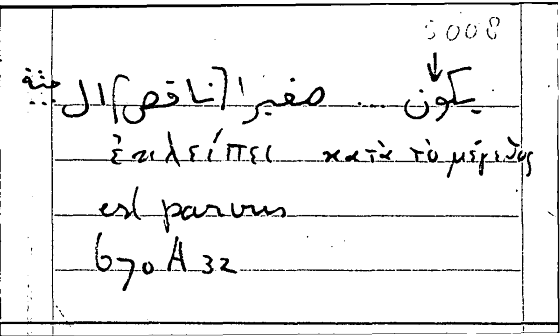 5008
↓
يكون .... صغيرا [ناقص] ال جثة
ἐκλείπει κατὰ τὸ μέγεθος
est parvus
670 A 32